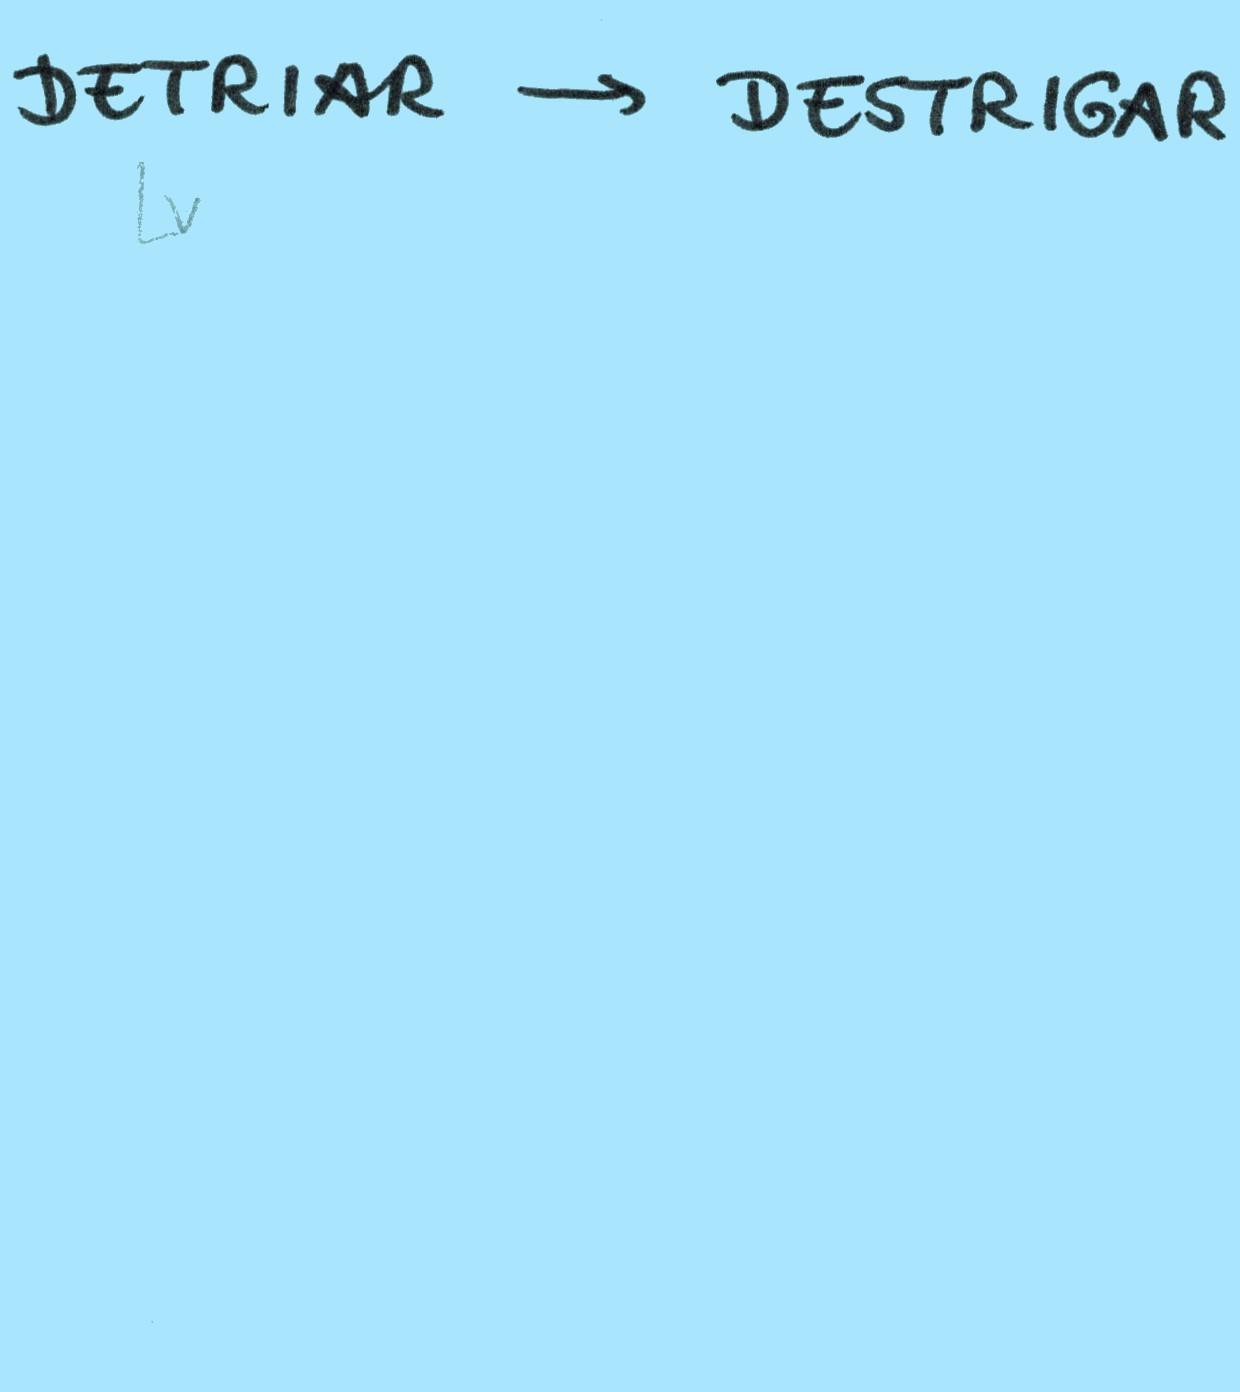 DETRIAR → DESTRIGAR
Lv